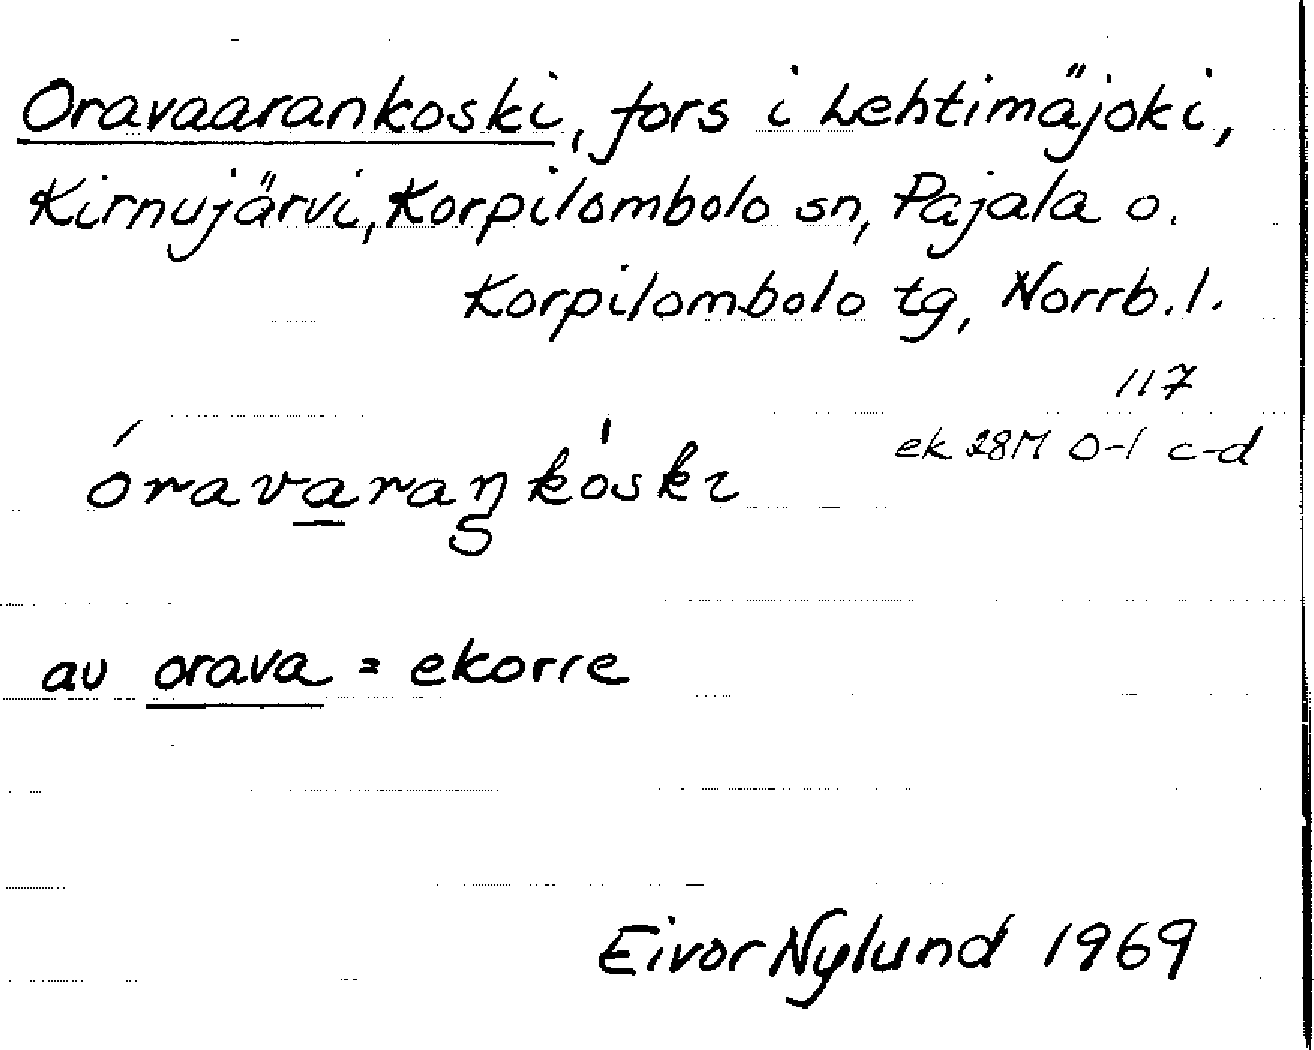 Oravaarankoski, fors i Lehtimäjoki,
Kirnujärvi, Korpilombolo sn, Pajala o.
Korpilombolo tg, Norrb. l.
117
ek 28M 0-1 c-d
óravaraŋkóski
av orava = ekorre
Eivor Nylund 1969